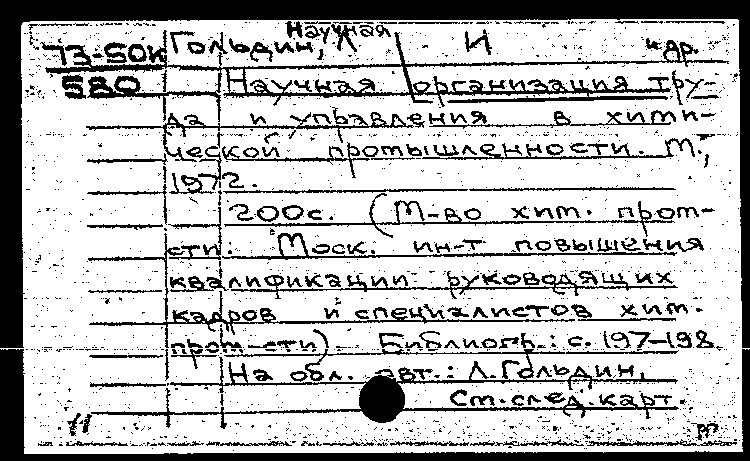 Научная
73-50к Гольдин, Л И и др.
580 Научная организация тру-
да и управления в хими-
ческой промышленности. М.,
1972.
200с. (М-во хим. пром-
сти. Моск. ин-т повышения
квалификации руководящих
кадров и специалистов хим.
пром-сти). Библиогр.: с. 197-198
На обл. авт.: Л. Гольдин,
См. след. карт.
11